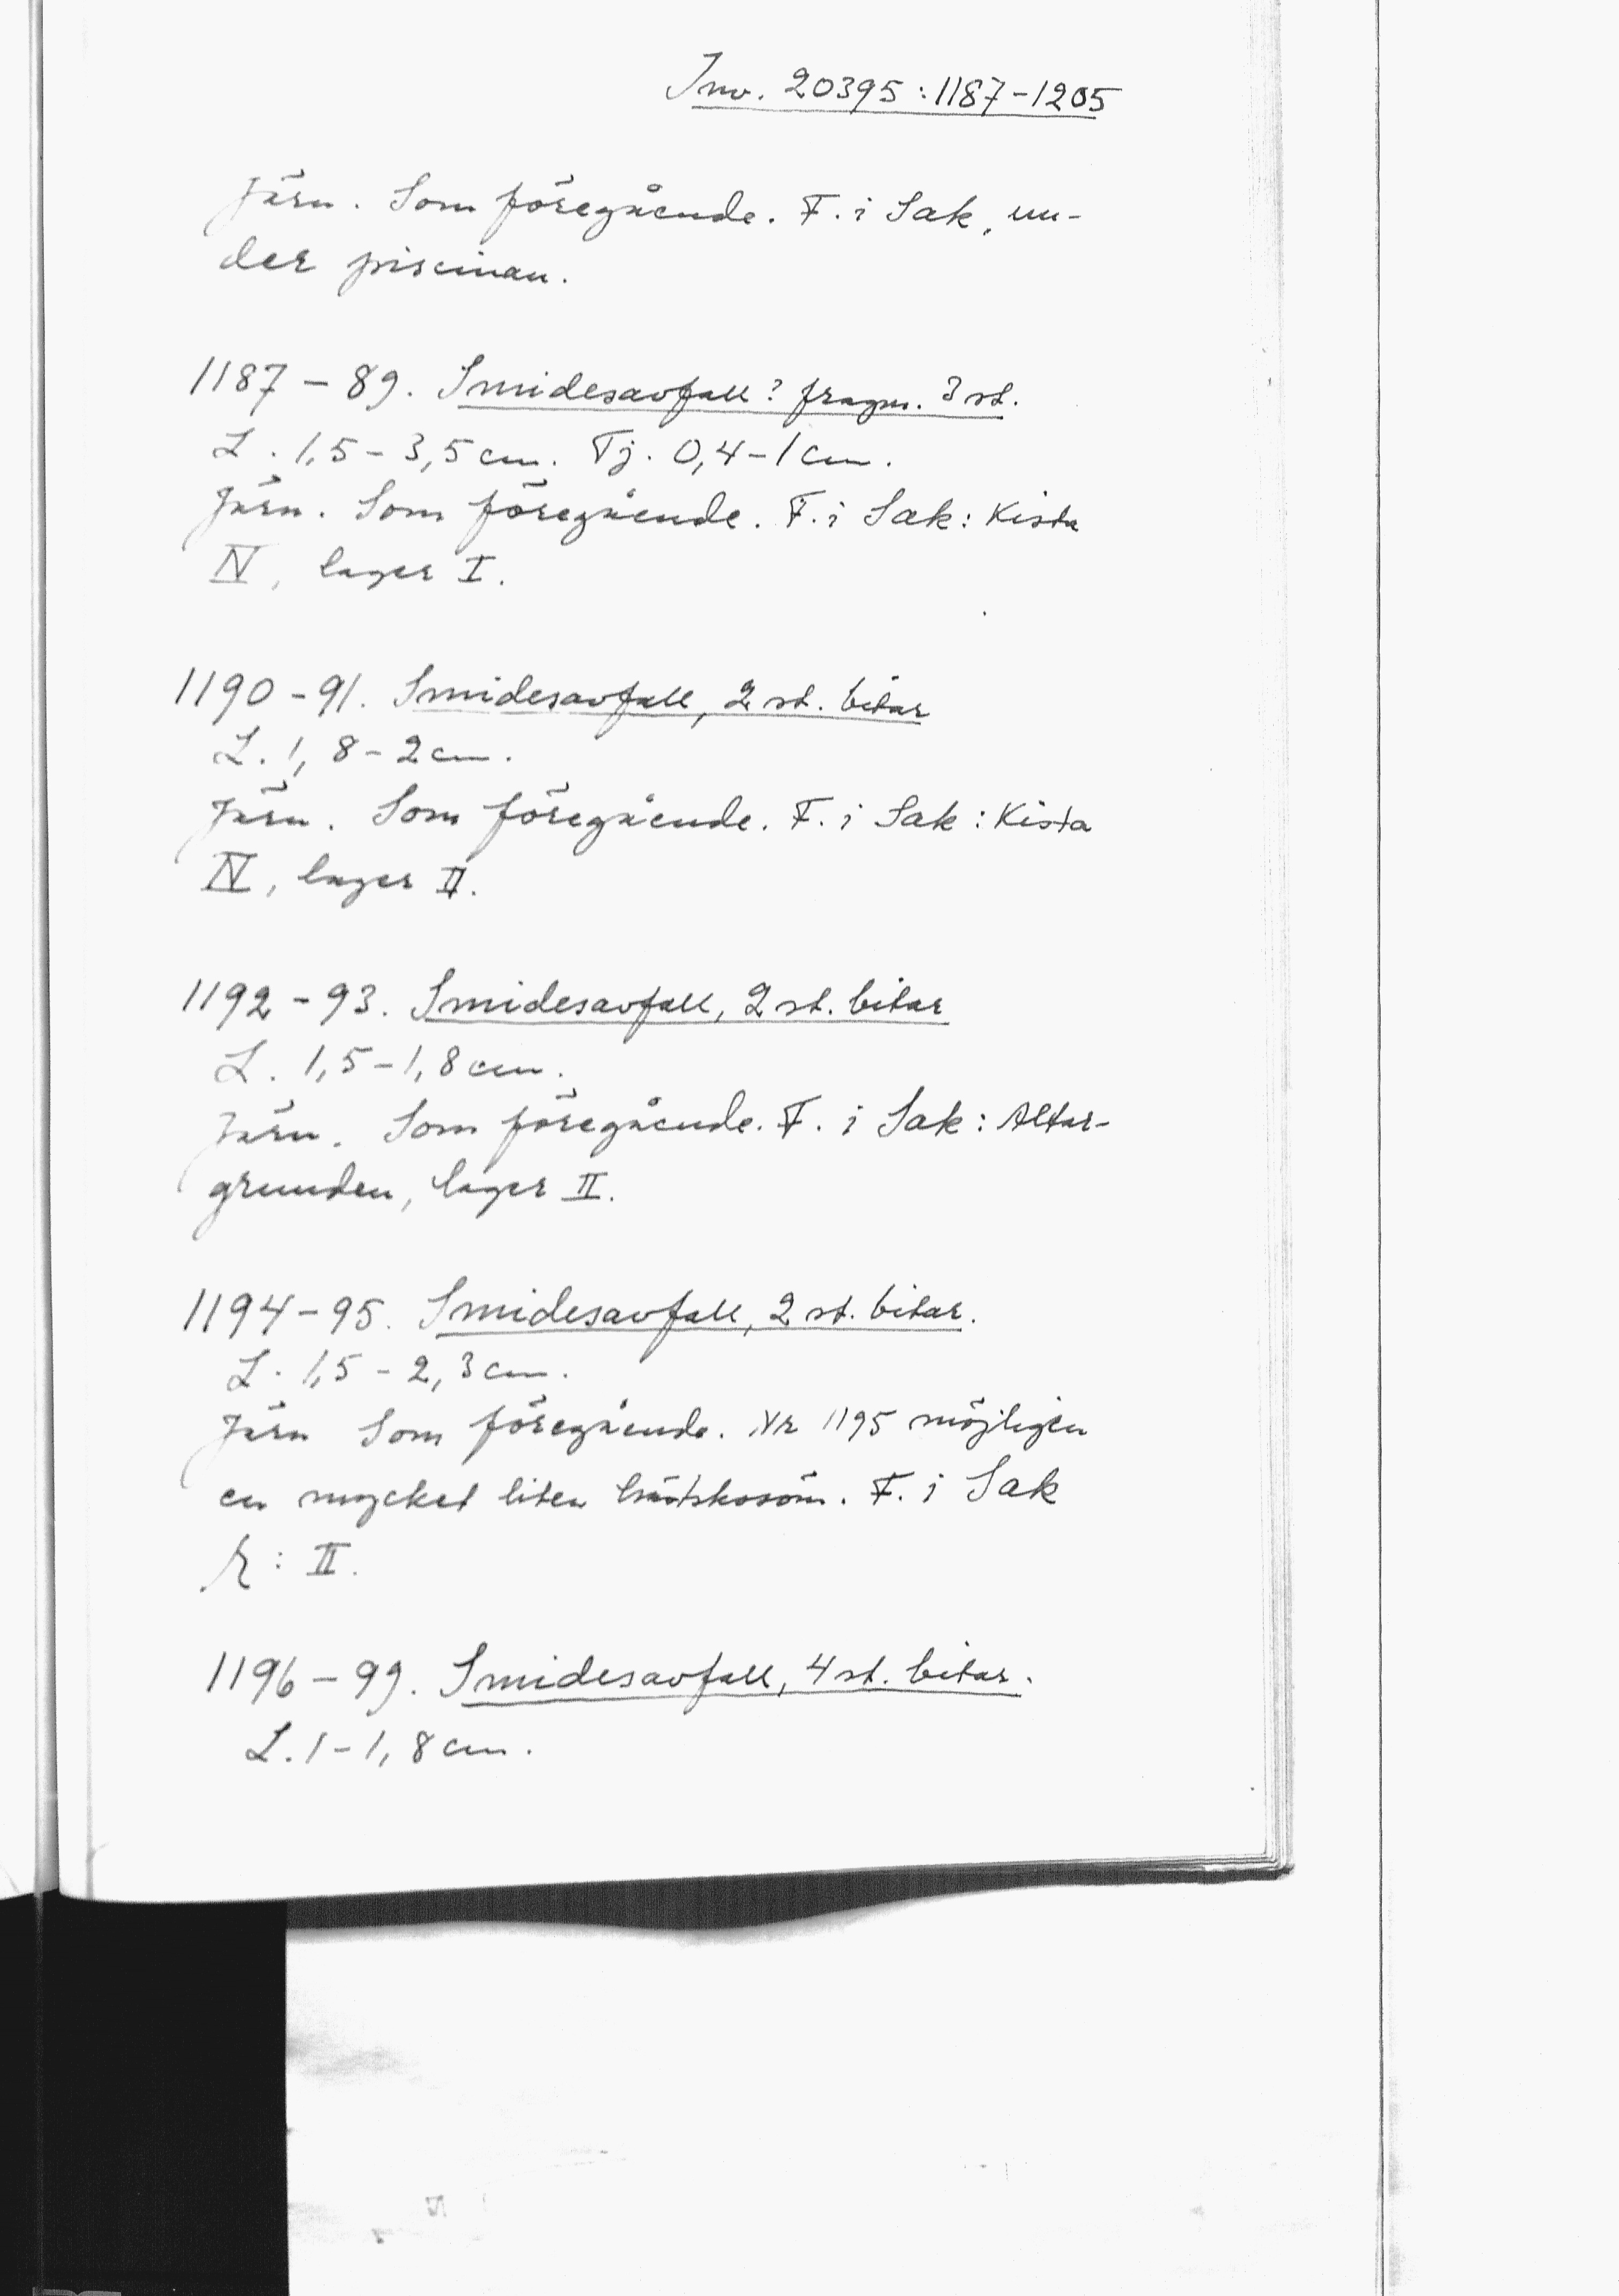 Inv. 20395:1187-1205
Järn. Som föregående. F. i Sak, un-
der piscinan.
1187-89. Smidesavfall? fragm. 3 st.
L. 1,5-3,5 cm. Tj. 0,4-1 cm.
Järn. Som föregående. F. i Sak: Kista
IV, lager I.
1190-91. Smidesavfall, 2 st. bitar
L. 1,8-2 cm.
Järn. Som föregående. F. i Sak: Kista
IV, lager II.
1192-93. Smidesavfall, 2 st. bitar
L. 1,5-1,8 cm.
Järn. Som föregående. F. i Sak: Altar-
grunden, lager II.
1194-95. Smidesavfall, 2 st. bitar.
L. 1,5-2,3 cm.
Järn Som föregående. Nr 1195 möjligen
en mycket liten hästskosöm. F. i Sak
: II.
1196-99. Smidesavfall, 4 st. bitar.
L. 1-1,8 cm.